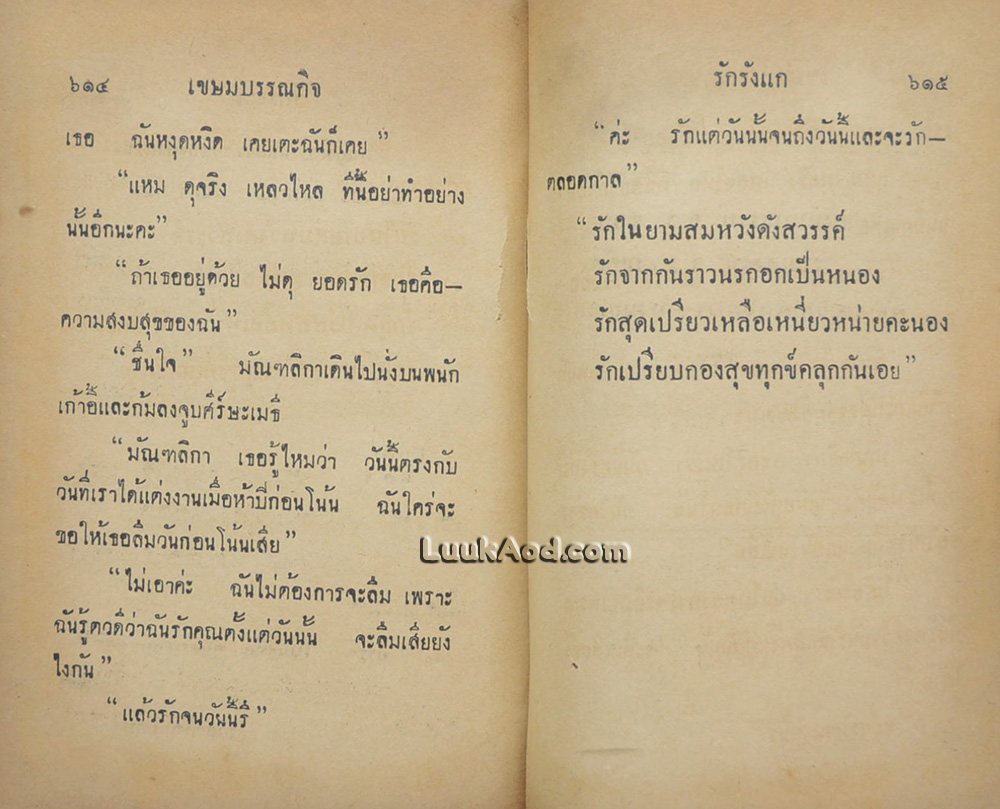 ๖๑๔ เขษมบรรณกิจ
เธอ ฉันหงุดหงิด เคยเตะฉันก็เคย”
“แหม ดุจริง เหลวไหล ทีนี้อย่าทำอย่าง
นั้นอีกนะคะ”
“ถ้าเธออยู่ด้วย ไม่ดุ ยอดรัก เธอคือ—
ความสงบสุขของฉัน”
“ชื่นใจ” มัณฑลิกาเดินไปนั่งบนพนัก
เก้าอี้และก้มลงจูบศีร์ษะเมธี
“มัณฑลิกา เธอรู้ไหมว่า วันนี้ตรงกับ
วันที่เราได้แต่งงานเมื่อห้าปีก่อนโน้น ฉันใคร่จะ
ขอให้เธอลืมวันก่อนโน้นเสีย”
“ไม่เอาค่ะ ฉันไม่ต้องการจะลืม เพราะ
ฉันรู้ตวดีว่าฉันรักคุณตั้งแต่วันนั้น จะลืมเสียยัง
ไงกัน”
“แล้วรักจนวันนี้รึ”
รักรังแก ๖๑๕
“ค่ะ รักแต่วันนั้นจนถึงวันนี้และจะรัก—
ตลอดกาล”
“รักในยามสมหวังดังสวรรค์
รักจากกันราวนรกอกเป็นหนอง
รักสุดเปรียวเหลือเหนี่ยวหน่ายคะนอง
รักเปรียบกองสุขทุกข์คลุกกันเอย”
LuukAod.com